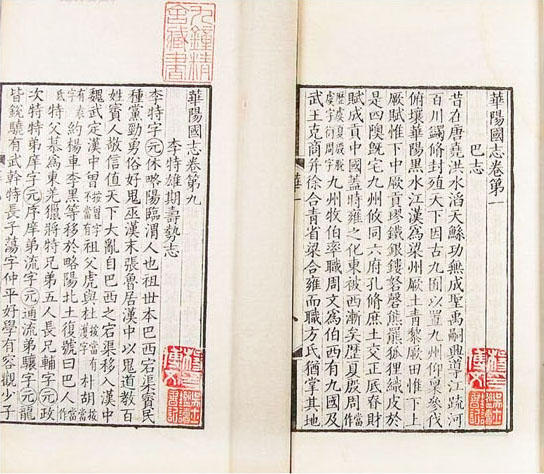 華陽國志卷第一
巴志
昔在唐堯洪水滔天鯀功無成聖禹嗣興導江疏河
百川蠲修封殖天下因古九囿以置九州仰稟參伐
俯壤華陽黑水江漢為梁州厥土青黎厥田惟下
厥賦惟下中厥貢璆鐵銀鏤砮磬熊羆狐狸織皮於
是四隩既宅九州攸同六府孔修庶土交正厎眘財
賦成貢中國蓋時雍之化東被西漸矣歷夏殷周當作
九州牧伯率職周文為伯西有九國及
武王克商并徐合青省梁合雍而職方氏猶掌其地
九鐘精舍藏書
華陽國志卷第九
李特雄期壽勢志
李特字元休略陽臨渭人也祖世本巴西宕渠賨民
種黨勁勇俗好鬼巫漢末張魯居漢中以鬼道教百
姓賨人敬信值天下大亂自巴西之宕渠移入漢中
魏武定漢中曾按曾字不當有祖父虎與杜按當有濩字朴胡按當
約楊車李黑等移於略陽北土復號曰巴人當作
氐特父慕為東羌獵將特兄弟五人長兄輔字元政
次特特弟庠字元序庠弟流字元通流弟驤字元龍
皆銳驍有武幹特長子蕩字仲平好學有容觀少子